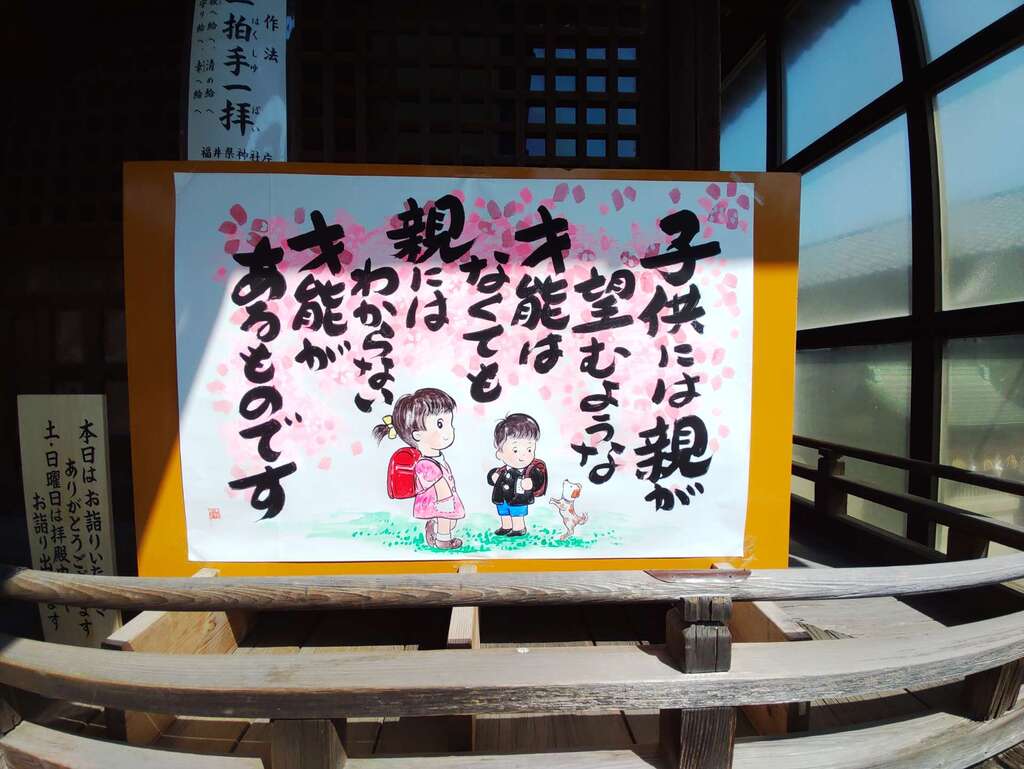 子供には親が
望むような
才能は
なくても
親には
わからない
才能が
あるものです
作法
拍手一拝
はくしゅ
ぱい
福井県神社庁
本日はお詣りいた
ありがとうご
土・日曜日は拝殿
お詣り出
ます